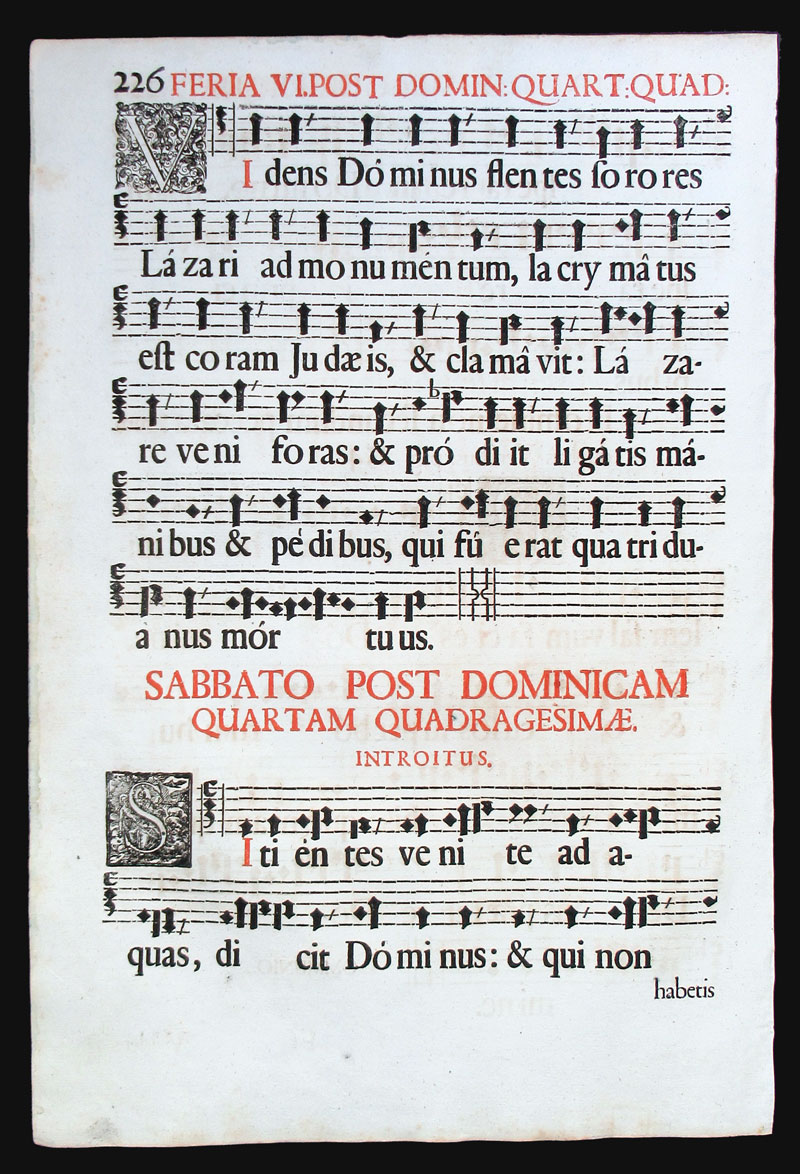 226 FERIA VI.POST DOMIN:QUART:QUAD:
VI dens Dó mi nus flen tes ſo ro res
Lá za ri ad mo nu mén tum, la cry mâ tus
eſt co ram Ju dæ is, & cla mâ vit: Lá za-
re ve ni fo ras: & pró di it li gá tis má-
ni bus & pé di bus, qui fû e rat qua tri du-
à nus mór tu us.
SABBATO POST DOMINICAM
QUARTAM QUADRAGESIMÆ.
INTROITUS.
SI ti én tes ve ni te ad a-
quas, di cit Dó mi nus: & qui non
habetis